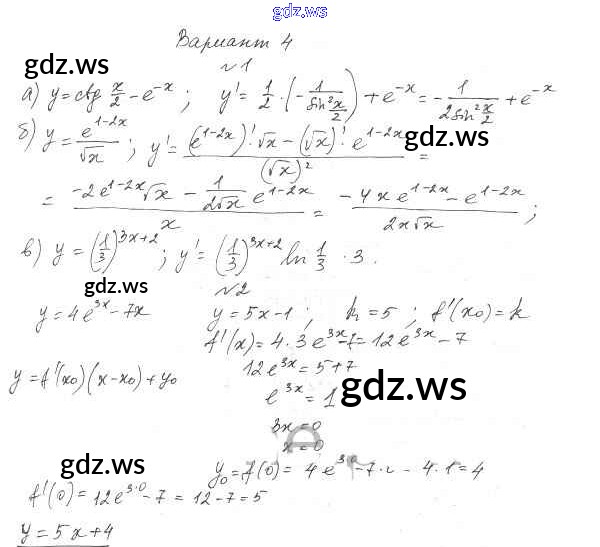 gdz.ws
Вариант 4
gdz.ws
№1
а) y = ctg x/2 - e^{-x} ; y' = 1/2 · (-1/(sin² x/2)) + e^{-x} = -1/(2 sin² x/2) + e^{-x}
б) y = e^{1-2x}/√x ; y' = ((e^{1-2x})' √x - (√x)' e^{1-2x})/(√x)² =
= (-2e^{1-2x}√x - 1/(2√x) e^{1-2x})/x = (-4x e^{1-2x} - e^{1-2x})/(2x√x) ;
в) y = (1/3)^{3x+2} ; y' = (1/3)^{3x+2} ln 1/3 · 3.
gdz.ws
№2
y = 4e^{3x} - 7x y = 5x-1 ; k = 5 ; f'(x₀) = k
f'(x) = 4·3e^{3x}-7 = 12e^{3x} - 7
12e^{3x} = 5+7
y = f'(x₀)(x-x₀)+y₀
e^{3x} = 1
gdz.ws
3x = 0
x = 0
gdz.ws
y₀ = f(0) = 4e^{3·0} - 7· - 4·1 = 4
f'(0) = 12e^{3·0} - 7 = 12-7 = 5
y = 5x+4
gdz.ws